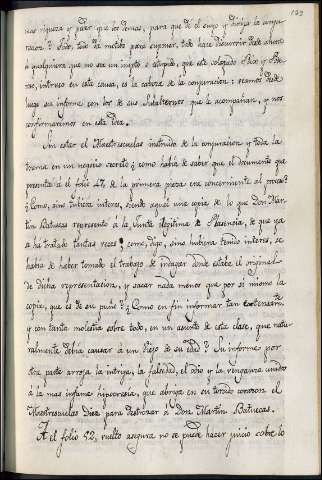 mas riqueza y poder que os demas, para que de el surgo y dirija la conju-
racion? Todo, todo da motivo para suponer, todo hace discurrir desde ahora
á qualquiera que no sea un inepto ó estupido, que este colapado Dico y
intruso en esta causa, es la cabeza de la conjuracion: veamos desde
luego su informe con los de sus subalternos que le acompañan, y nos
confirmaremos en esta idea.
Sin estar el Maestrescuelas instruido de la conjuracion y toda la
trama en un negocio secreto ¿como habia de saber que el documento que
presenta á el folio 47 de la primera pieza era concerniente al proceso?
¿Como, sino tubiera interes, siendo aquel una copia de lo que Don Mar-
tin Batuecas represento á la Junta legitima de Plasencia, de que ya
se ha tratado tantas veces; como, digo, sino hubiera tenido interes, se
habia de haber tomado el trabajo de indagar donde estaba el original
de dicha representacion, y sacar nada menos que por si mismo la
copia, que es de su puño? ¿Como en fin informar tan extensamente
y con tanta molestia sobre todo, en un asunto de esta clase, que natu-
ralmente debia causar á un viejo de su edad? Su informe por
otra parte arroja la intriga, la falsedad, el odio y la venganza unidos
á la mas infame hipocresia, que abriga en su torcido corazon el
Maestrescuelas Diez para destrozar á Don Martin Batuecas.
A el folio 92, vuelto asegura no se puede hacer juicio sobre lo